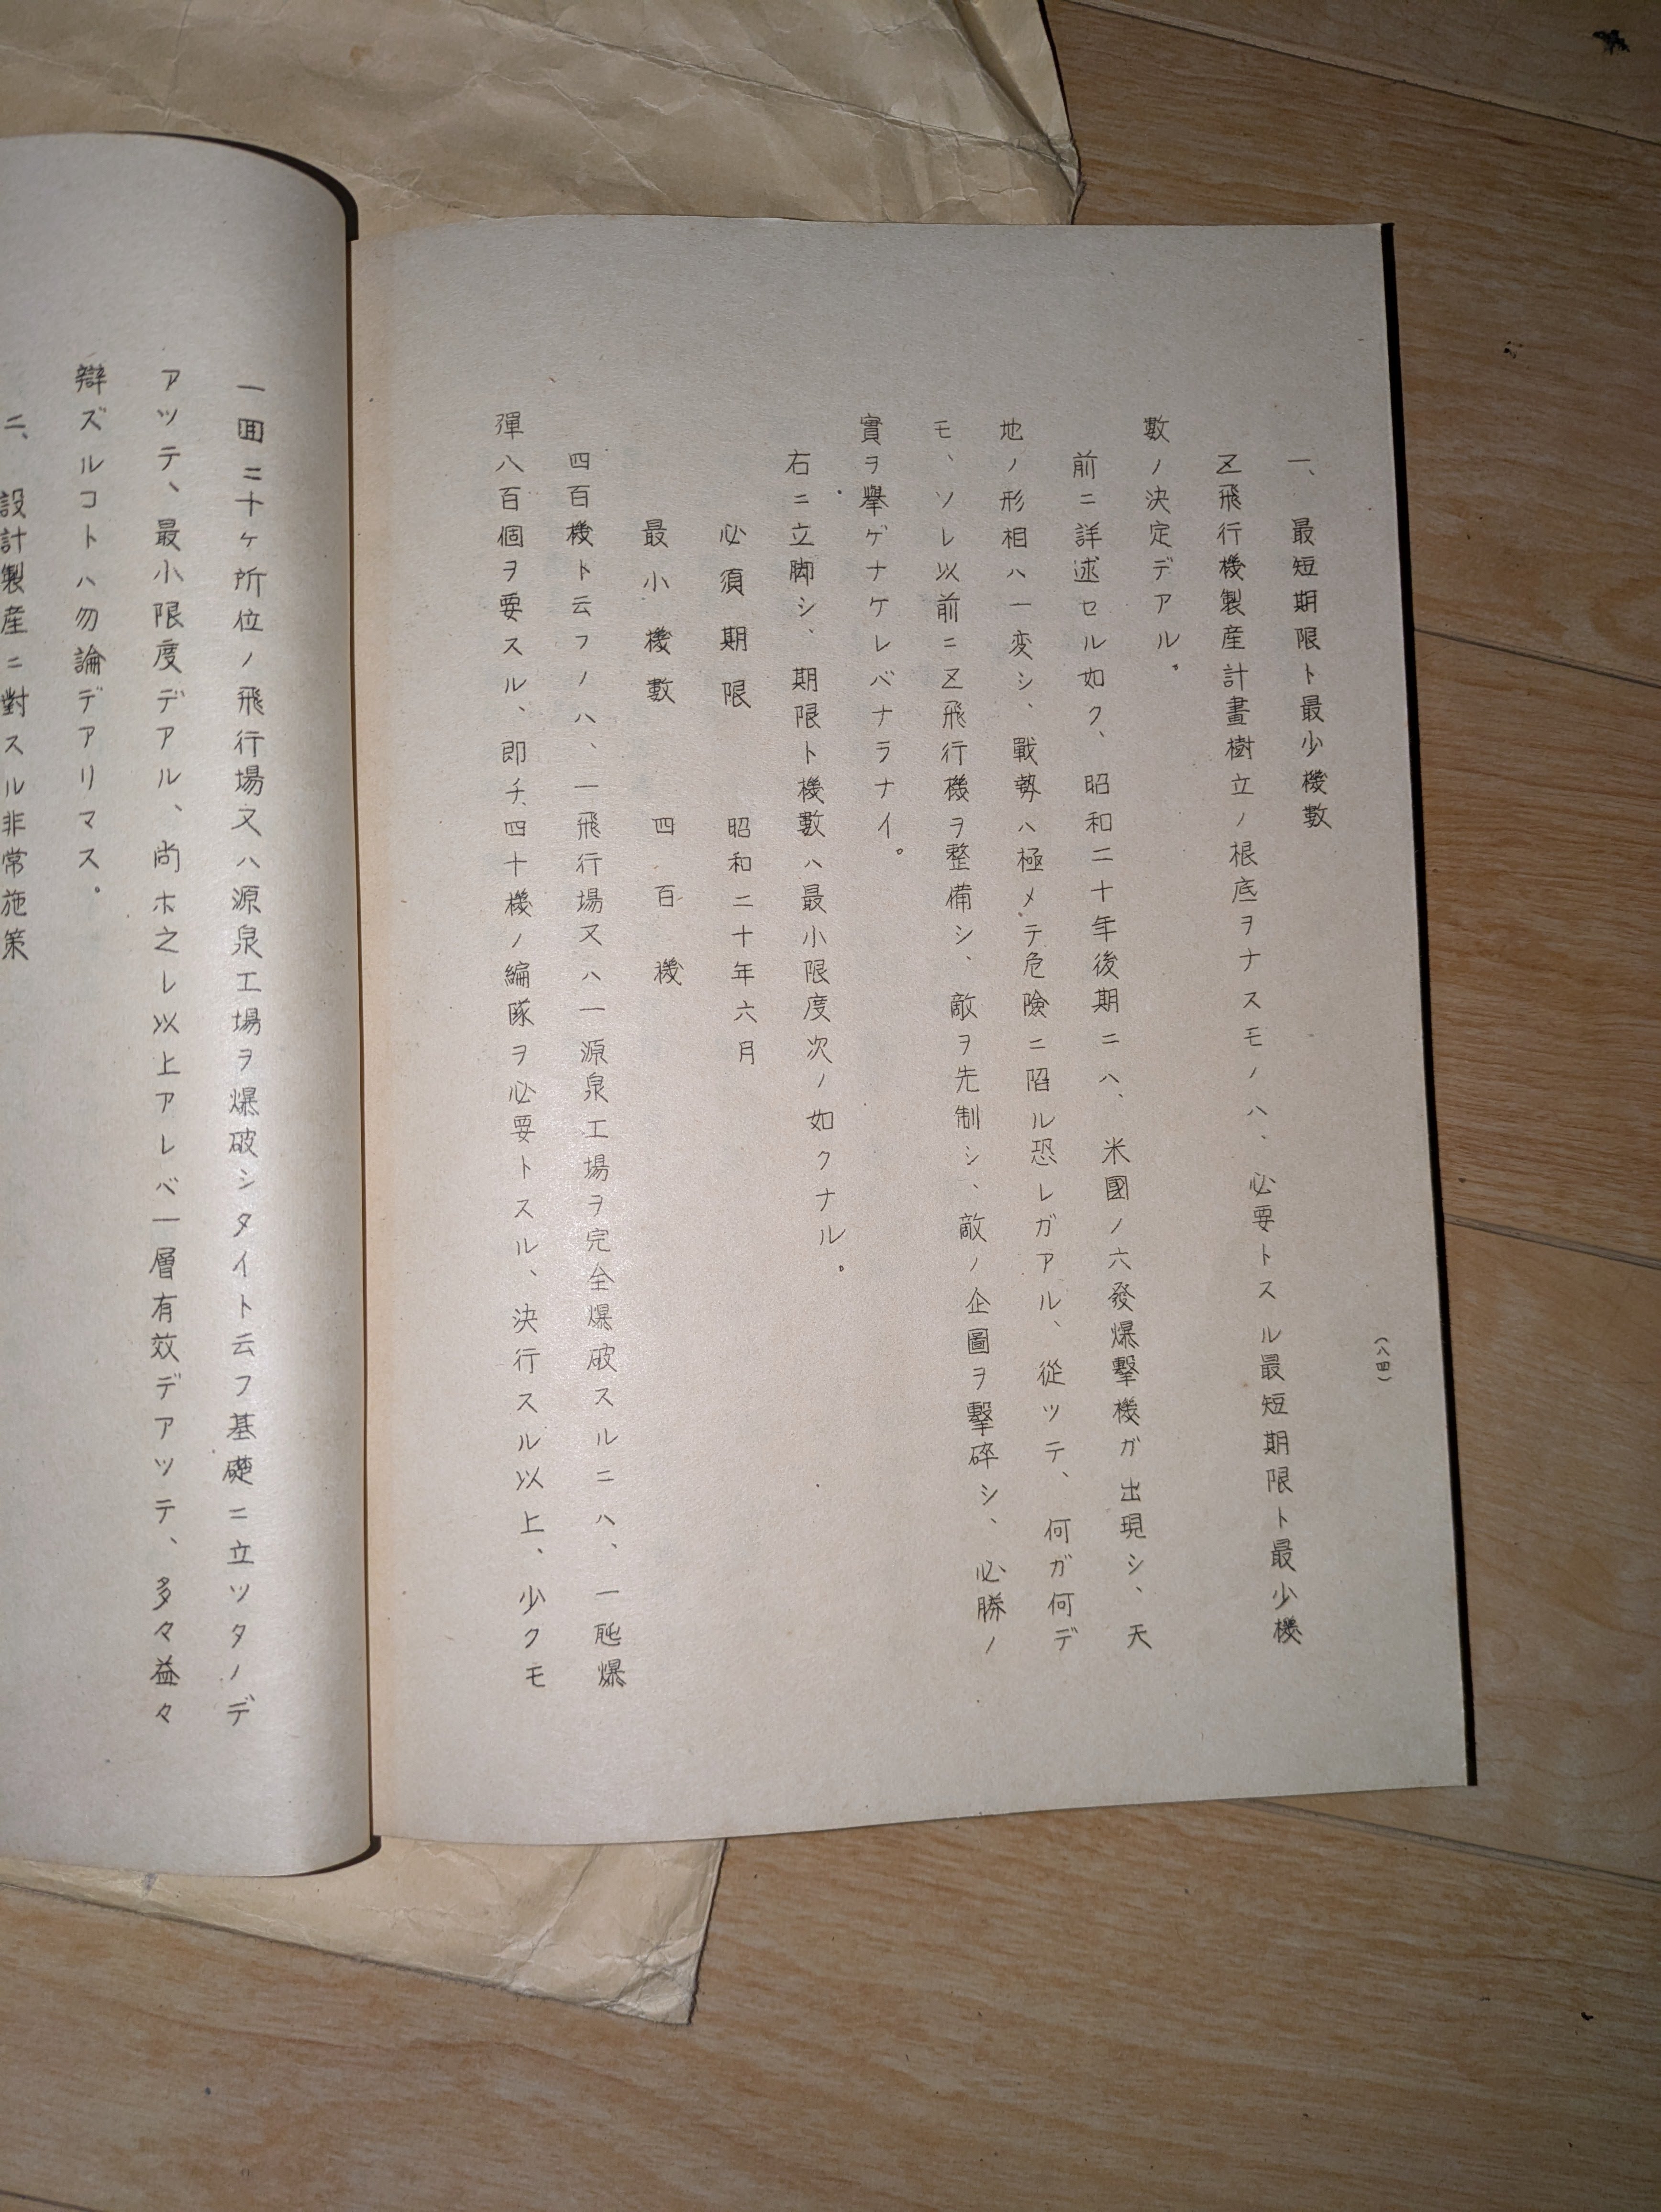 (八四)
一、最短期限ト最少機數
Z飛行機製産計畫樹立ノ根底ヲナスモノハ、必要トスル最短期限ト最少機
數ノ決定デアル。
前ニ詳述セル如ク、昭和二十年後期ニハ、米國ノ六發爆撃機ガ出現シ、天
地ノ形相ハ一変シ、戰勢ハ極メテ危險ニ陷ル恐レガアル、從ツテ、何ガ何デ
モ、ソレ以前ニZ飛行機ヲ整備シ、敵ヲ先制シ、敵ノ企圖ヲ擊碎シ、必勝ノ
實ヲ擧ゲナケレバナラナイ。
右ニ立脚シ、期限ト機數ハ最小限度次ノ如クナル。
必須期限 昭和二十年六月
最小機數 四百機
四百機ト云フノハ、一飛行場又ハ一源泉工場ヲ完全爆破スルニハ、一瓲爆
彈八百個ヲ要スル、即チ四十機ノ編隊ヲ必要トスル、決行スル以上、少クモ
一囬ニ十ヶ所位ノ飛行場又ハ源泉工場ヲ爆破シタイト云フ基礎ニ立ツタノデ
アツテ、最小限度デアル、尚ホ之レ以上アレバ一層有效デアツテ、多々益々
辯ズルコトハ勿論デアリマス。
二、設計製産ニ對スル非常施策